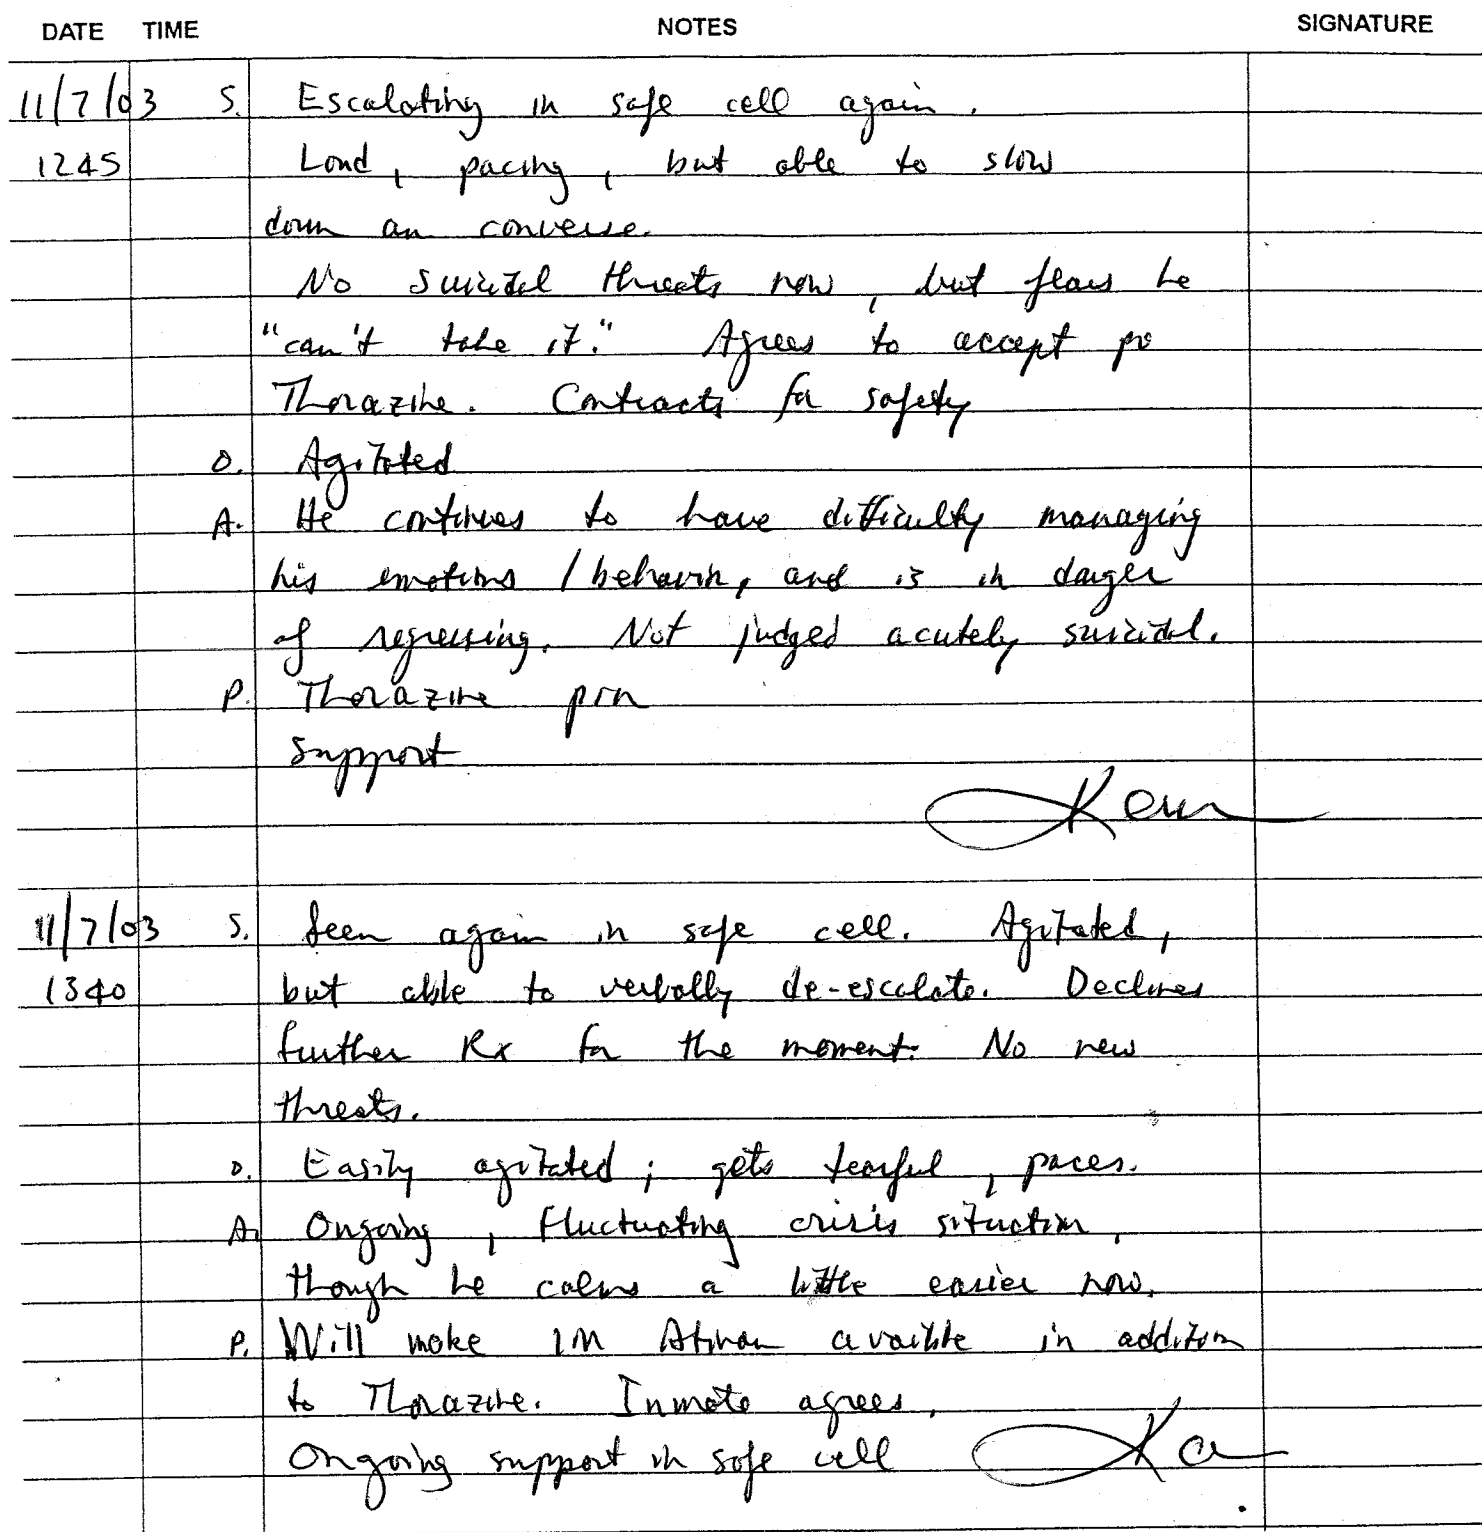 DATE TIME NOTES SIGNATURE
11/7/03 S. Escalating in safe cell again.
1245 Loud, pacing, but able to slow
down an converse.
No suicidal threats now, but fears he
"can't take it." Agrees to accept po
Thorazine. Contracts for safety
O. Agitated
A. He continues to have difficulty managing
his emotions / behavior, and is in danger
of regressing. Not judged acutely suicidal.
P. Thorazine prn
Support
11/7/03 S. Seen again in safe cell. Agitated,
1340 but able to verbally de-escalate. Declines
further Rx for the moment. No new
threats.
O. Easily agitated; gets tearful, paces.
A. Ongoing, fluctuating crisis situation,
though he calms a little easier now.
P. Will make IM Ativan availble in addition
to Thorazine. Inmate agrees.
Ongoing support in safe cell